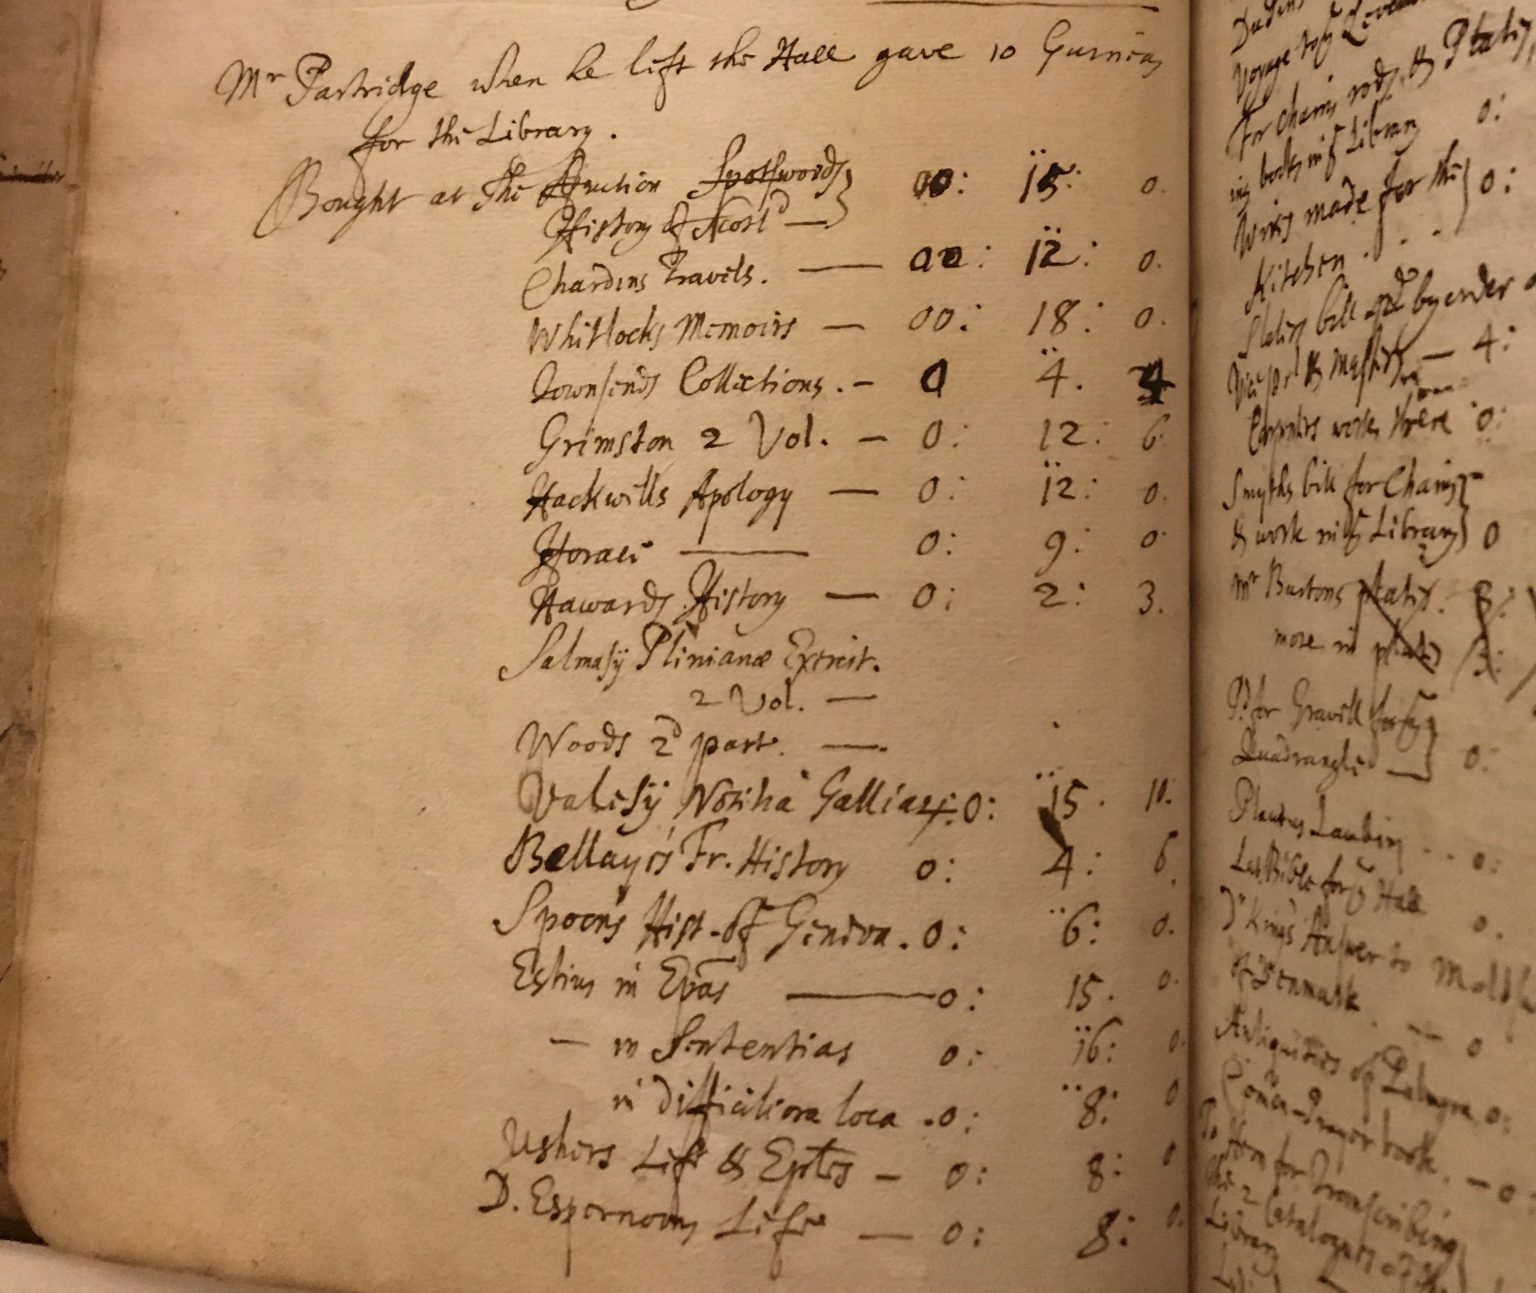 Mr Partridge when he left the Hall gave 10 Guineas
for the Library.
Bought at the Auction Spotswoods } 00: 15: 0.
History of Scotld —
Chardins Travels. — 00: 12: 0.
Whitlocks Memoirs — 00: 18: 0.
Townsends Collections. – 0 4. 4
Grimston 2 Vol. — 0: 12: 6
Hackwills Apology — 0: 12: 0.
Horace — 0: 9: 0
Hawards History — 0: 2: 3.
Salmasij Plinianæ Exercit.
2 Vol. —
Woods 2d part. —
Valesij Notitia Galliar: 0: 15. 10.
Bellay's Fr. History 0: 4: 6.
Spoons Hist. of Geneva. 0: 6: 0.
Estius in Epas — 0: 15. 0.
— in Sententias 0: 16: 0.
in difficiliora loca . 0: 8: 0
Ushers Life & Eptes — 0: 8: 0
D. Espernons Life — 0: 8: 0.
Voyage to ye Levant
for chains rods, & Plates
ing books in ye Library 0:
Wires made for the } 0:
Kitchen . . .
bill by order
— 4:
Carpenters work there 0:
Smyths bill for Chains
& work in ye Library } 0
Mr Burtons plates. 3:
more in plates 3:
Pd for Gravell for ye
Quadrangle — } 0:
Plautus Laubin . . 0:
Lat Bible for ye Hall 0.
Dr Kings Answer to Molesw
of Denmark . — 0
Antiquities of Palmyra 0:
prayer book. — 0
To Hern for Transcribing
the 2 Catalogues of ye
Library